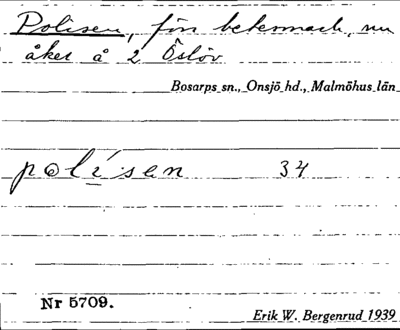 Polisen, förr betesmark, nu
åker å 2 Öslöv
Bosarps sn., Onsjö hd., Malmöhus län
polisen 34
Nr 5709.
Erik W. Bergenrud 1939